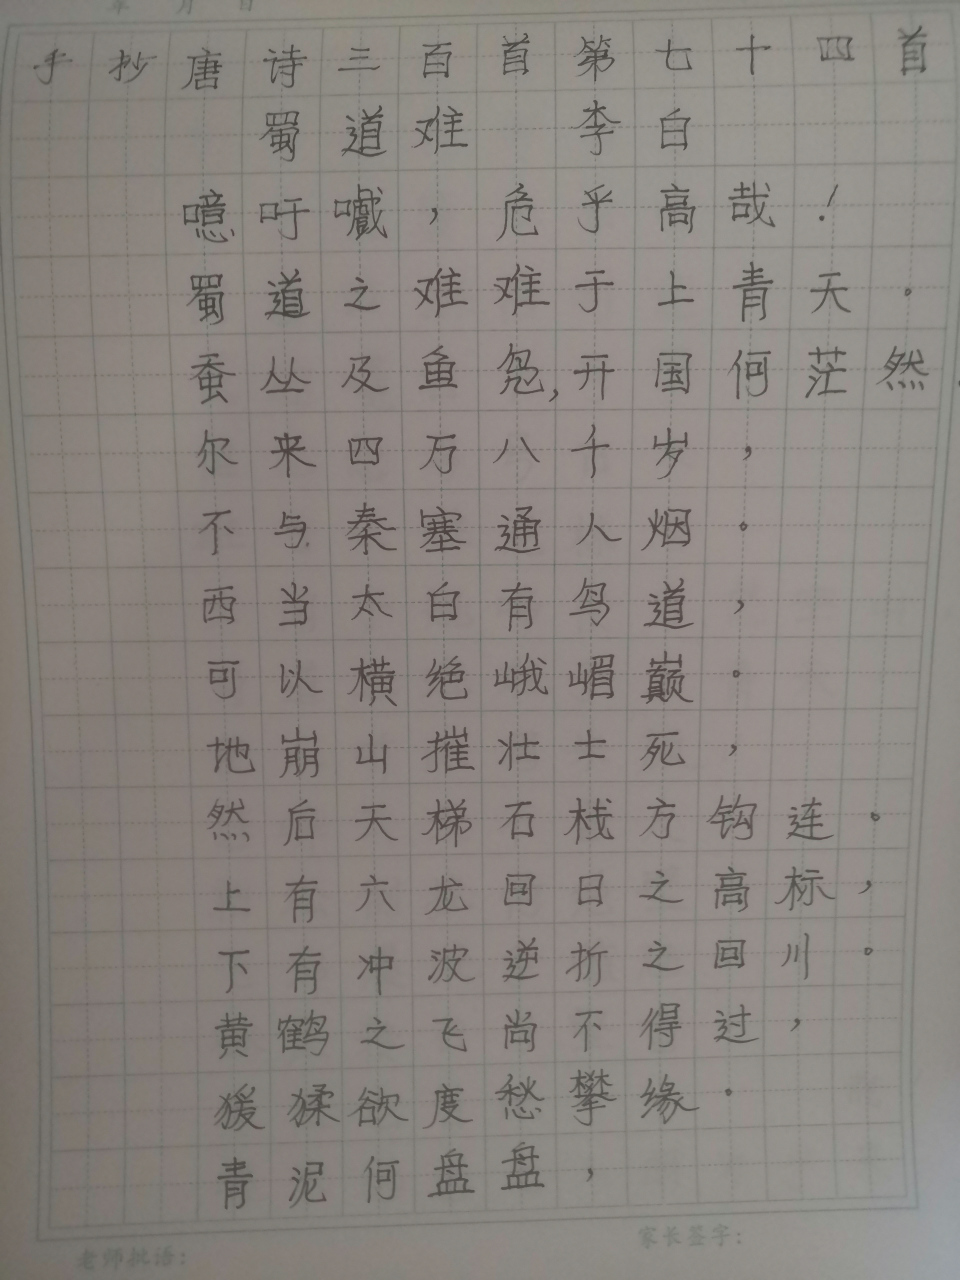 年 月 日
手抄唐诗三百首第七十四首
蜀道难 李白
噫吁嚱，危乎高哉！
蜀道之难难于上青天。
蚕丛及鱼凫,开国何茫然.
尔来四万八千岁，
不与秦塞通人烟。
西当太白有鸟道，
可以横绝峨嵋巅。
地崩山摧壮士死，
然后天梯石栈方钩连。
上有六龙回日之高标，
下有冲波逆折之回川。
黄鹤之飞尚不得过，
猨猱欲度愁攀缘.
青泥何盘盘，
老师批语:
家长签字: